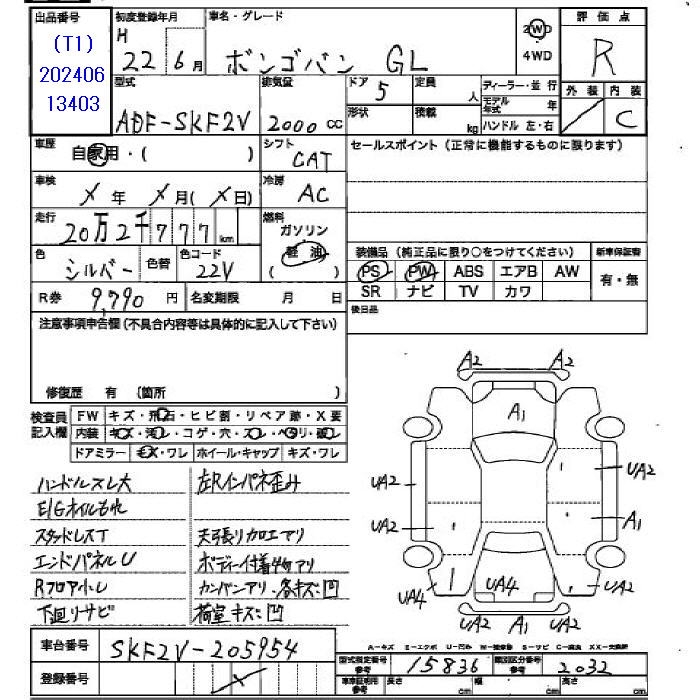 出品番号 初度登録年月 車名・グレード 評価点
(T1) H
202406 22 6月 ボンゴバン GL 2WD 4WD R
13403
型式 排気量 ドア 5 定員 人 ディーラー・並行 外装 内装
形状 積載 kg モデル年式 年
ADF-SKF2V 2000 CC ハンドル 左・右 C
車歴 自家用・( ) シフト CAT セールスポイント(正常に機能するものに限ります)
車検 X年 X月(X日) 冷房 AC
走行 20万2千777km 燃料 ガソリン 軽油 ( )
色 シルバー 色替 色コード 22V
装備品(純正品に限り○をつけてください) 新車保証書
PS PW ABS エアB AW 有・無
R券 9,790円 名変期限 月 日 SR ナビ TV カワ
注意事項申告欄(不具合内容等は具体的に記入して下さい) 後日品
修復歴 有 (箇所 )
検査員記入欄 FW キズ・飛石・ヒビ割・リペア跡・X要
内装 キズ・汚レ・コゲ・穴・スレ・ヘタリ・破レ
ドアミラー キズ・ワレ ホイール・キャップ キズ・ワレ
ハンドルスレ大 左Rインパネ歪み
E/Gオイルもれ
スタッドレスT 天張り加工アリ
エンドパネルU ボディー付着物アリ
Rフロア小U カンバンアリ・各キズ凹
下廻りサビ 荷室キズ凹
A2 A2
A1
UA2 UA2
UA2 A1
UA4 UA4 UA2
UA2 A1 UA2
車台番号 SKF2V-205954
A-キズ E-エクボ U-凹み W-補修跡 S-サビ C-腐食 XX-交換済
登録番号 X
型式指定番号 参考 15836 類別区分番号 参考 2032
車車証明用 参考 長さ cm 幅 cm 高さ cm